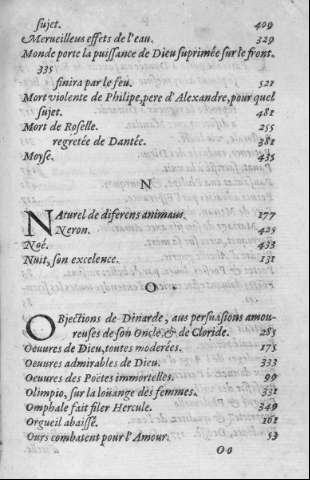 sujet. 409
Merueilleus effets de l'eau. 329
Monde porte la puissance de Dieu suprimée sur le front.
335
finira par le feu. 521
Mort violente de Philipe, pere d'Alexandre, pour quel
sujet. 481
Mort de Roselle. 255
regretée de Dantée. 381
Moyse. 435
N
NAturel de diferens animaus. 177
Neron. 425
Noé. 433
Nuit, son excelence. 131
O
OBjections de Dinarde, aus persuasions amou-
reuses de son Oncle & de Cloride. 285
Oeuures de Dieu, toutes moderées. 175
Oeuures admirables de Dieu. 333
Oeuures des Poëtes immortelles. 99
Olimpio, sur la loüange des femmes. 331
Omphale fait filer Hercule. 349
Orgueil abaissé. 161
Ours combatent pour l'Amour. 53
Oo